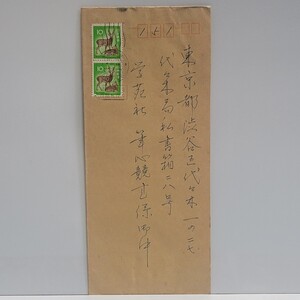 東京都渋谷区代々木一の二七
代々木局私書箱二八号
学苑社 筆心競書係御中
151